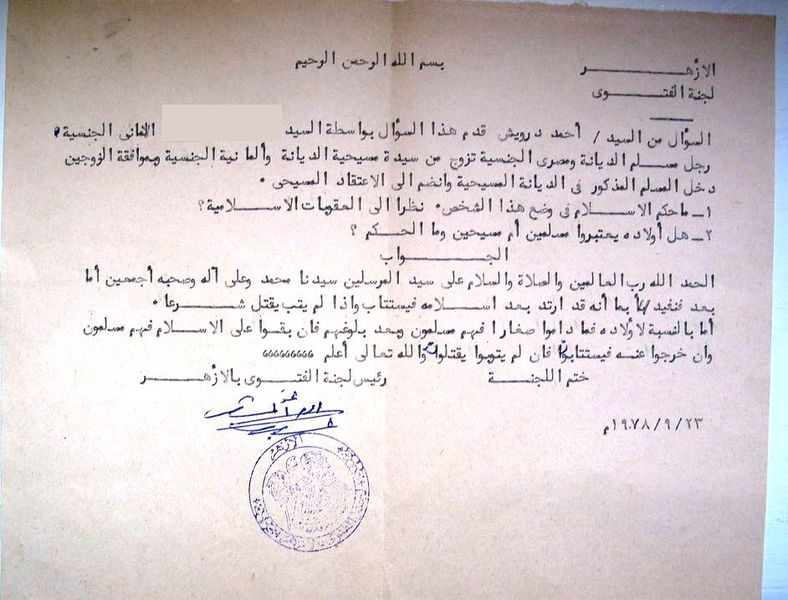 بسم الله الرحمن الرحيم
الأزهـــــر
لجنة الفتـــــوى
السؤال من السيد / أحمد درويش قدم هذا السؤال بواسطة السيد المانى الجنسية
رجل مسلم الديانة ومصرى الجنسية تزوج من سيدة مسيحية الديانة وألمانية الجنسية وبموافقة الزوجين
دخل المسلم المذكور فى الديانة المسيحية وانضم الى الاعتقاد المسيحى .
١ــ ماحكم الاسـلام فى وضع هذا الشخص . نظرا الى العقوبات الاسـلامية ؟
٢ــ هل أولاده يعتبروا مسلمين أم مسيحين وما الحـكم ؟
الجـــواب
الحمد الله رب العالمين والصلاة والسلام على سيد المرسلين سيدنا محمد وعلى آله وصحبه أجمعين أما
بعد فنفيد بأنه قد ارتد بعد اسـلامه فيستتاب واذا لم يتب يقتل شـرعا .
أما بالنسبة لأولاده فما داموا صغارا فهم مسلمون وبعد بلوغهم فان بقوا على الاسـلام فهم مسلمون
وان خرجوا عنه فيستتابوا فان لم يتوبوا يقتلون والله تعالى أعلم
ختم اللجنـــة رئيس لجنة الفتـوى بالأزهــر
١٩٧٨/٩/٢٣م
الأزهر